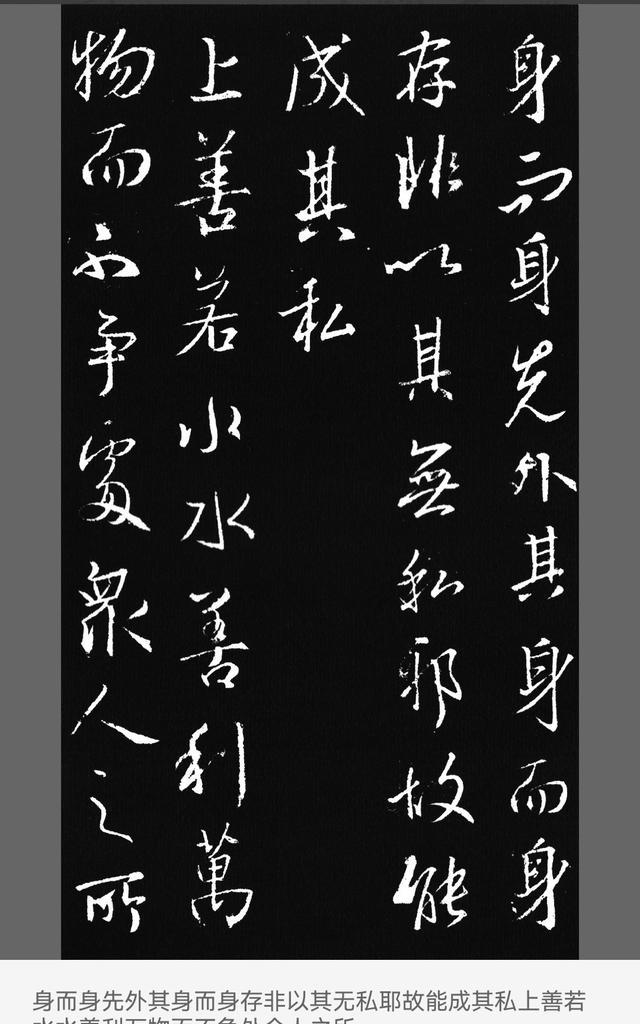 身而身先外其身而身
存非以其無私邪故能
成其私
上善若水水善利萬
物而不争處衆人之所
身而身先外其身而身存非以其无私耶故能成其私上善若
水水善利万物而不争处众人之所